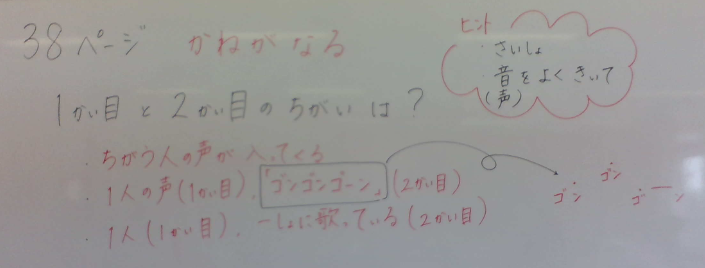 38ページ かねがなる
ヒント
・さいしょ
・音をよくきいて
(声)
1かい目と2かい目のちがいは?
・ちがう人の声が入ってくる
・1人の声(1かい目)、「ゴンゴンゴーン」(2かい目)
・1人(1かい目)、一しょに歌っている(2かい目)
ゴン ゴン ゴーン